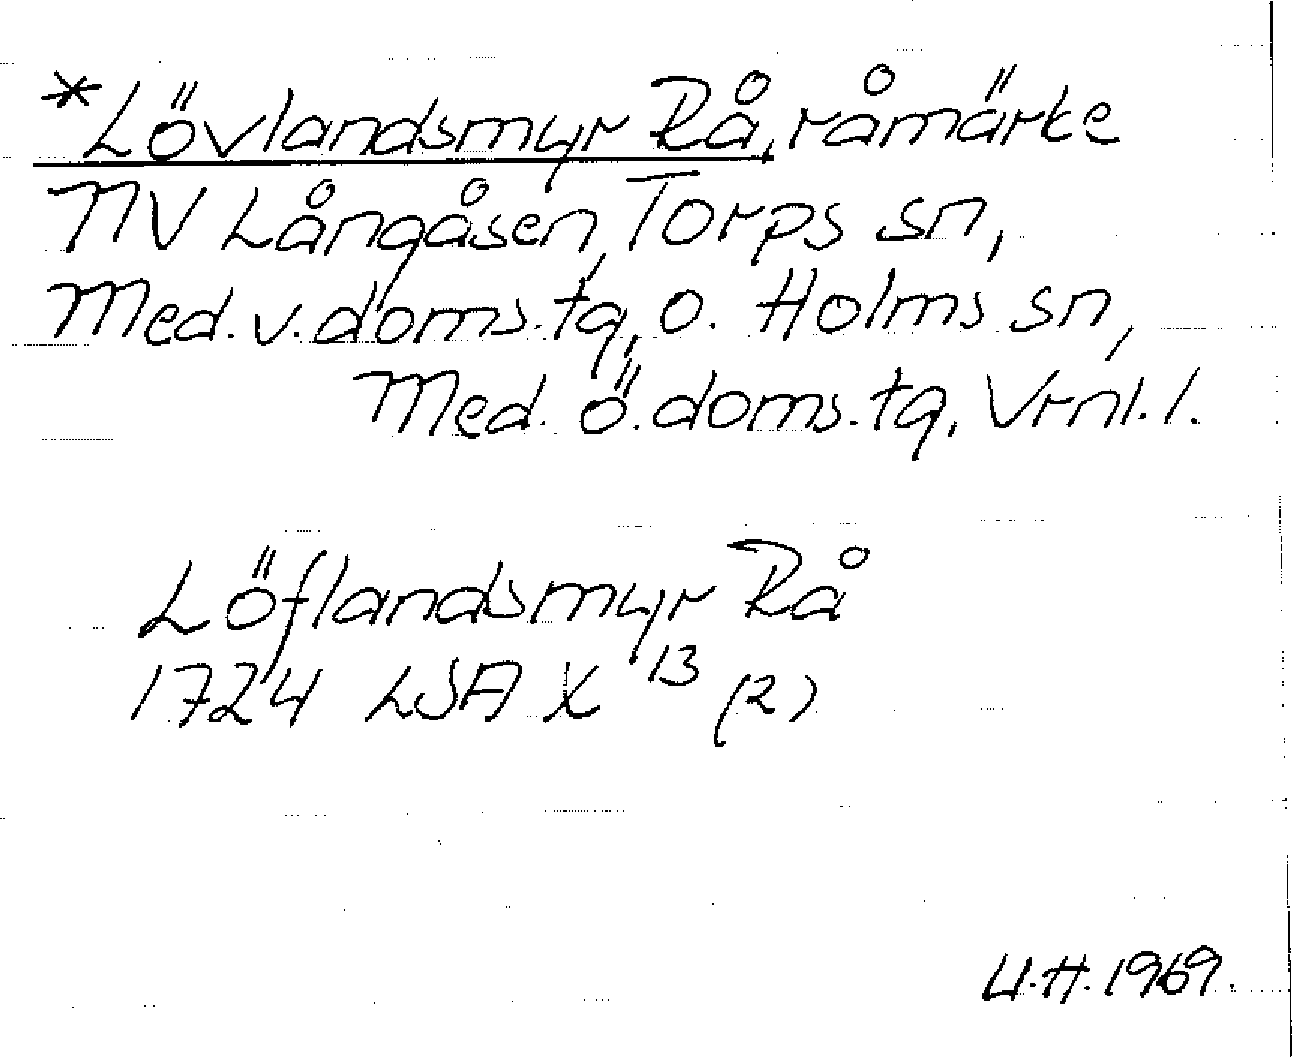 *Lövlandsmyr Rå, råmärke
NV Långåsen, Torps sn,
Med. v. doms. tg, o. Holms sn,
Med. ö. doms. tg, Vrnl. l.
Löflandsmyr Rå
1724 LSA X 13 (2)
U.H. 1969.